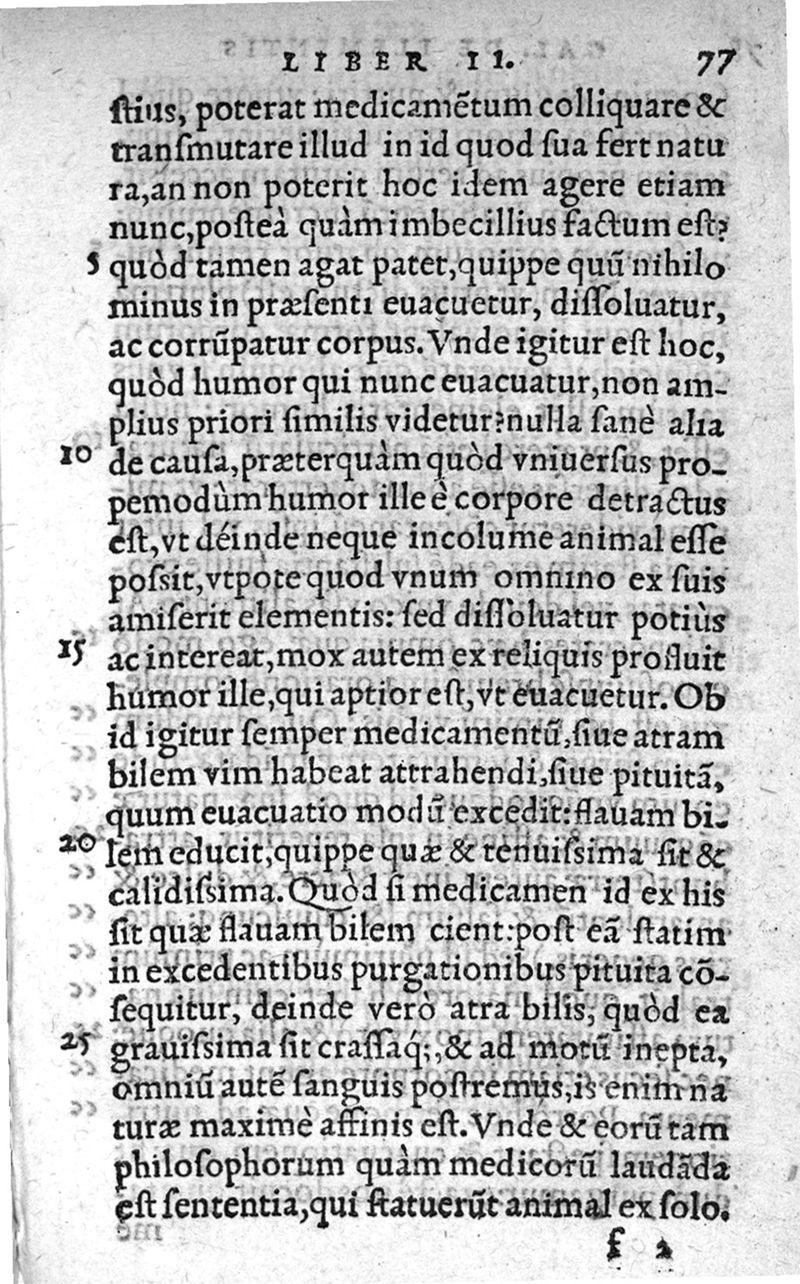 LIBER II. 77
ſtius, poterat medicamẽtum colliquare &
tranſmutare illud in id quod ſua fert natu
ra, an non poterit hoc idem agere etiam
nunc, poſteà quàm imbecillius factum eſt?
5 quòd tamen agat patet, quippe quũ nihilo
minus in præſenti euacuetur, diſſoluatur,
ac corrũpatur corpus. Vnde igitur eſt hoc,
quòd humor qui nunc euacuatur, non am-
plius priori ſimilis videtur? nulla ſanè alia
10 de cauſa, præterquàm quòd vniuerſus pro-
pemodùm humor ille è corpore detractus
eſt, vt déinde neque incolume animal eſſe
poſsit, vtpote quod vnum omnino ex ſuis
amiſerit elementis: ſed diſſoluatur potiùs
15 ac intereat, mox autem ex reliquis profluit
humor ille, qui aptior eſt, vt euacuetur. Ob
id igitur ſemper medicamentũ, ſiue atram
bilem vim habeat attrahendi, ſiue pituitã,
quum euacuatio modũ excedit: flauam bi-
20 lem educit, quippe quæ & tenuiſsima ſit &
calidiſsima. Quòd ſi medicamen id ex his
ſit quæ flauam bilem cient: poſt eã ſtatim
in excedentibus purgationibus pituita cõ-
ſequitur, deinde verò atra bilis, quòd ea
25 grauiſsima ſit craſſaq́;, & ad motũ inepta,
omniũ autẽ ſanguis poſtremus, is enim na
turæ maximè affinis eſt. Vnde & eorũ tam
philoſophorum quàm medicorũ laudãda
eſt ſententia, qui ſtatuerũt animal ex ſolo.
f 2